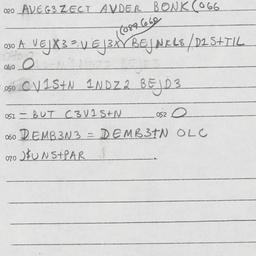 020 AVEG3ZECT AVDER BONK(066
(089,660
030 A VEJX3=VEJ3XYBEJNRLS/D1S+TIL
040 O
050 CV1S+N 1NDZ2 BEJD3
051 = BUT C3V1S+N 052 O
060 DEMB3N3 = DEMB3+N OLC
070 FUNS+PAR .